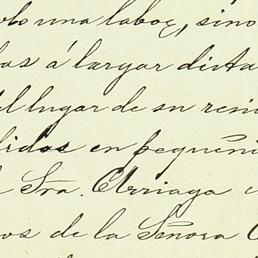 olo una labor, sino
as á largar dista
l lugar de su resi
idos en pequeñi
Sra. Arriaga
os de la Señora